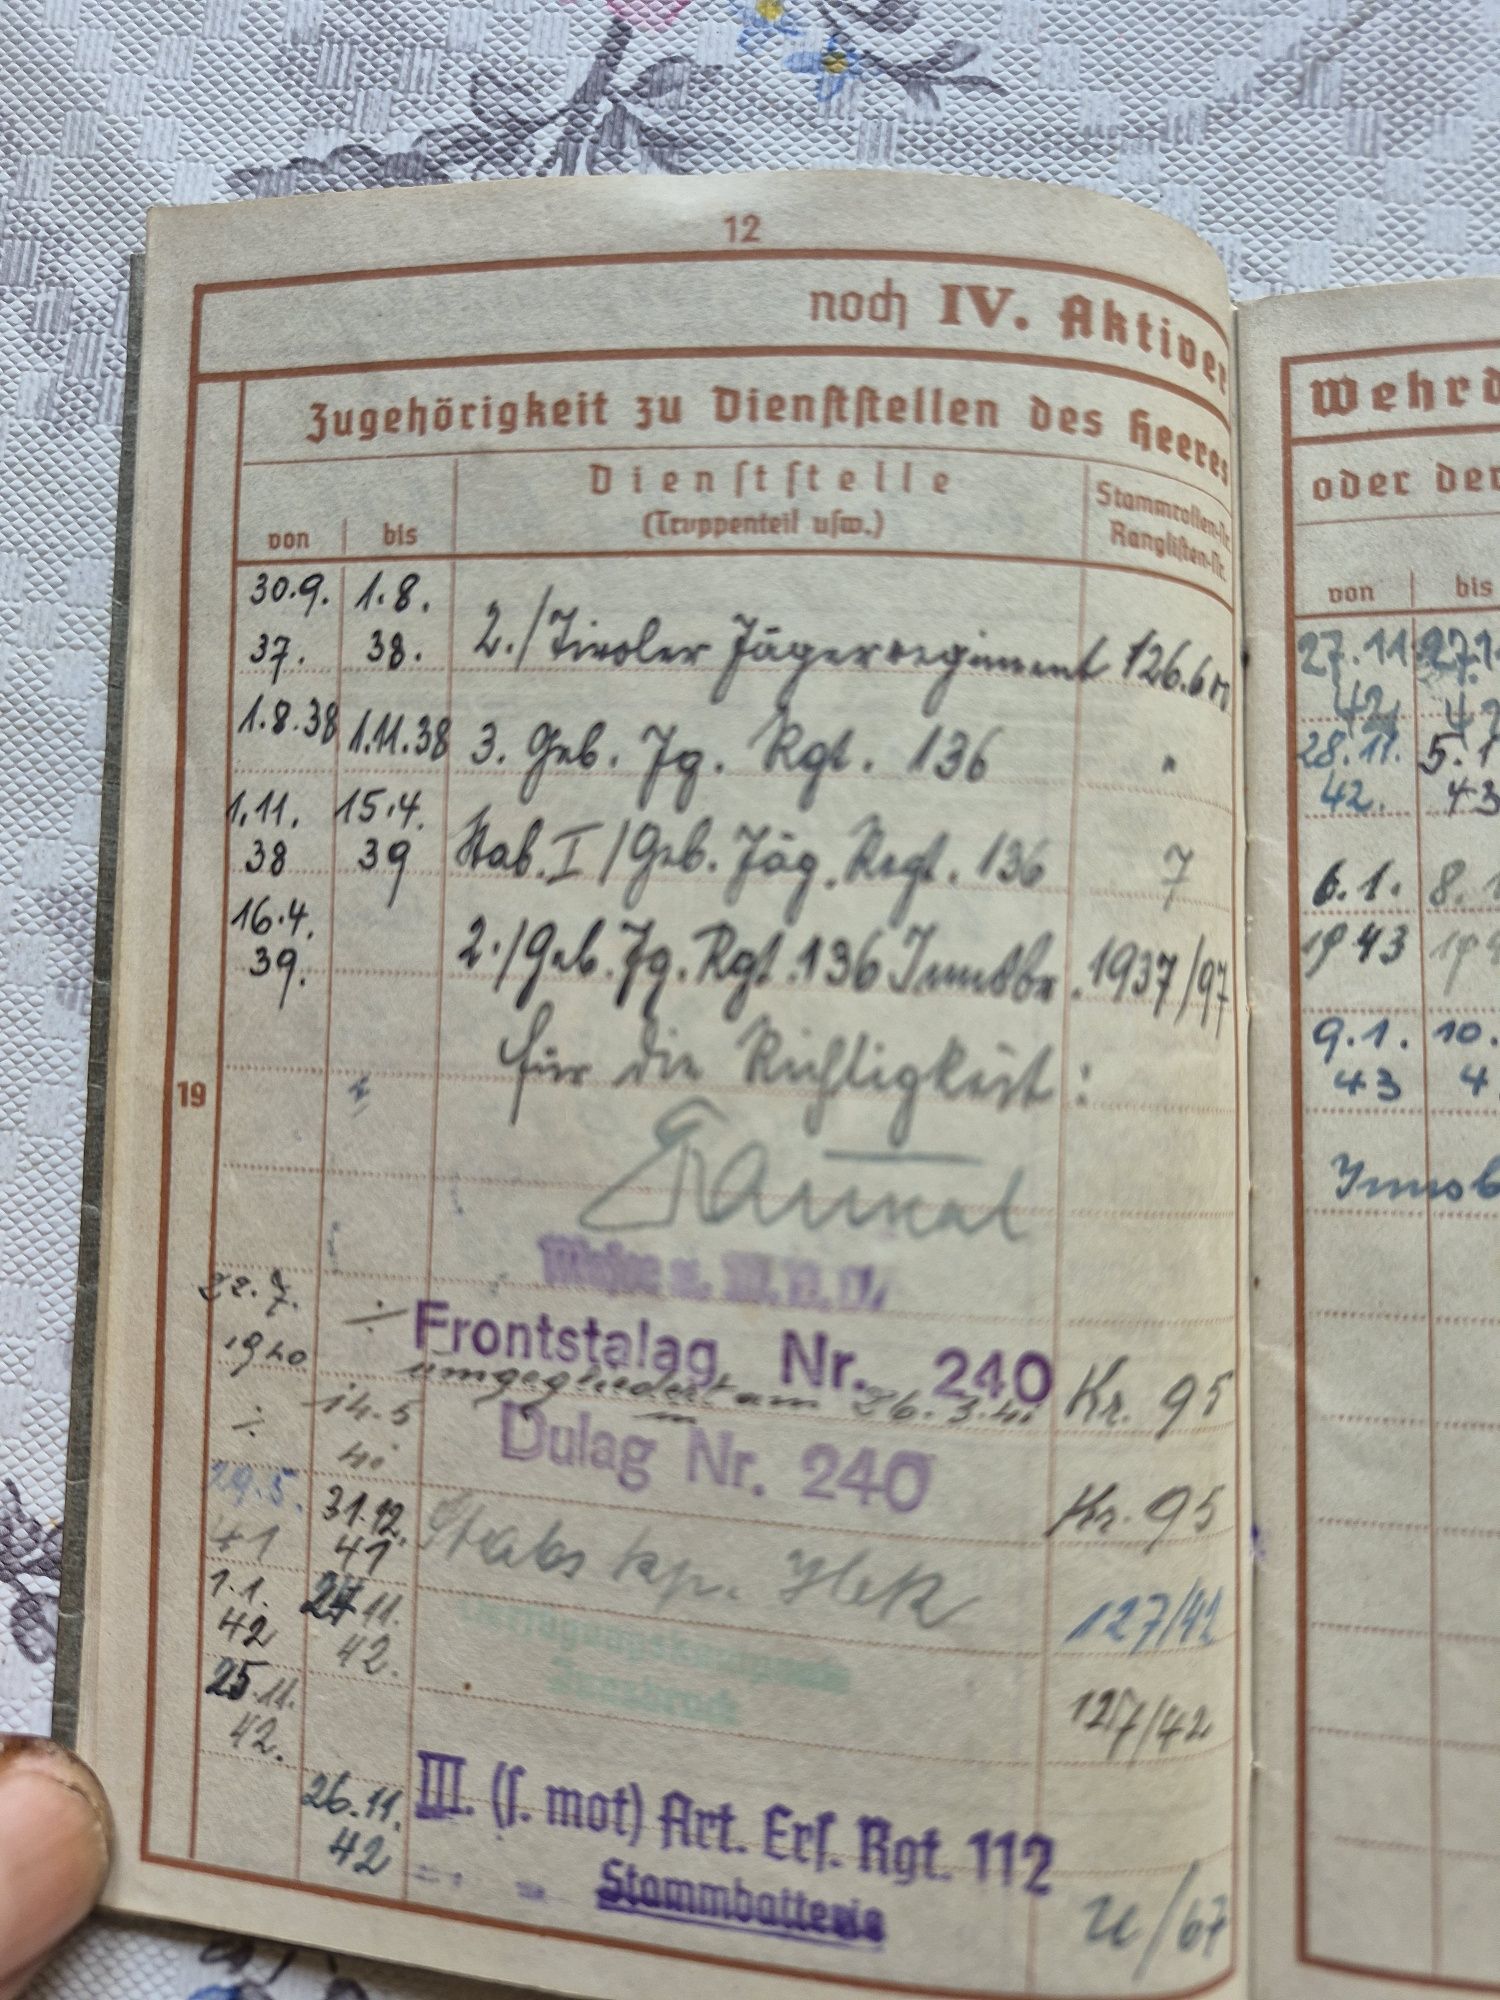 12
noch IV. Aktiver
Zugehörigkeit zu Dienststellen des Heeres
von
bis
Dienststelle
(Truppenteil usw.)
Stammrollen-Nr.
Ranglisten-Nr.
30.9. 1.8.
37. 38. 2./Tiroler Jägerregiment 126.
1.8.38 1.11.38 3. Geb. Jg. Rgt. 136 "
1.11. 15.4.
38 39 Stab. I/Geb. Jäg. Regt. 136 7
16.4.
39. 2./Geb. Jg. Rgt. 136 Innsbr. 1937/97
für die Richtigkeit:
19
Major u.
22.7. ÷ Frontstalag Nr. 240 Kr. 95
1940 umgegliedert am 26.3.41
in
÷ 14.5 Dulag Nr. 240 Kr. 95
41
29.5. 31.12.
41 41 Stabskp. 127/42
1.1. 11. Verfügungskompanie
42 42. Innsbruck 127/42
25.11.
42.
26.11. III. (s. mot) Art. Ers. Rgt. 112
42 Stammbatterie /67
Wehrd
oder der
von
bis
27.11.
42
28.11. 5.1
42. 43
6.1. 8.1
1943 19
9.1. 10.
43 4
Innsb